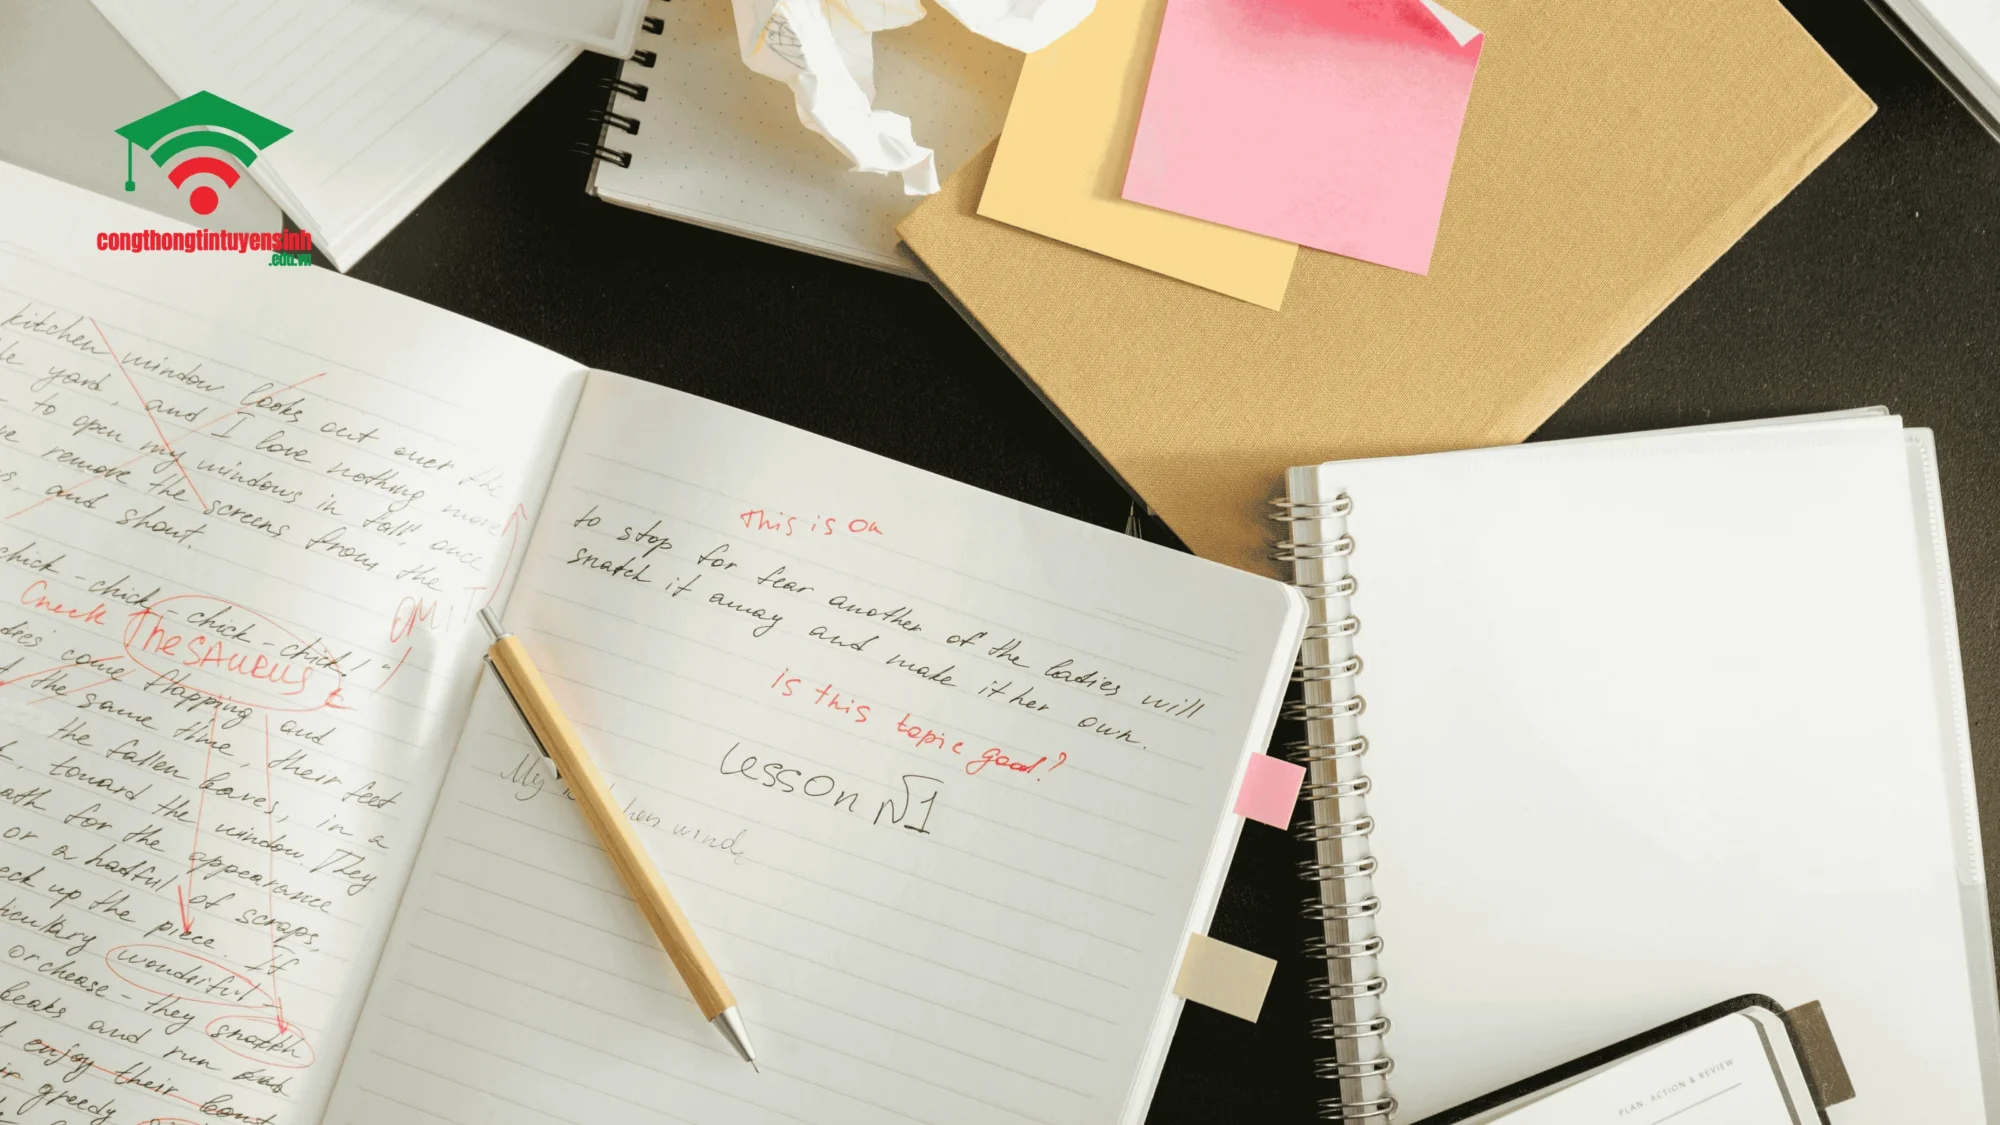 congthongtintuyensinh
.edu.vn
kitchen window looks out over the
yard, and I love nothing more
to open my windows in fall, once
remove the screens from the
and shout.
chick - chick - chick - chick!"
Check Thesaurus
OMIT
come flapping and
the same time, their feet
the fallen leaves, in a
toward the window. They
for the appearance
or a hatful of scraps,
up the piece. If
wonderful -
or cheese - they snatch
beaks and run
enjoy their
greedy
This is
to stop for fear another of the ladies will
snatch it away and make it her own.
is this topic good?
Lesson №1
My
wind
PLAN, ACTION & REVIEW